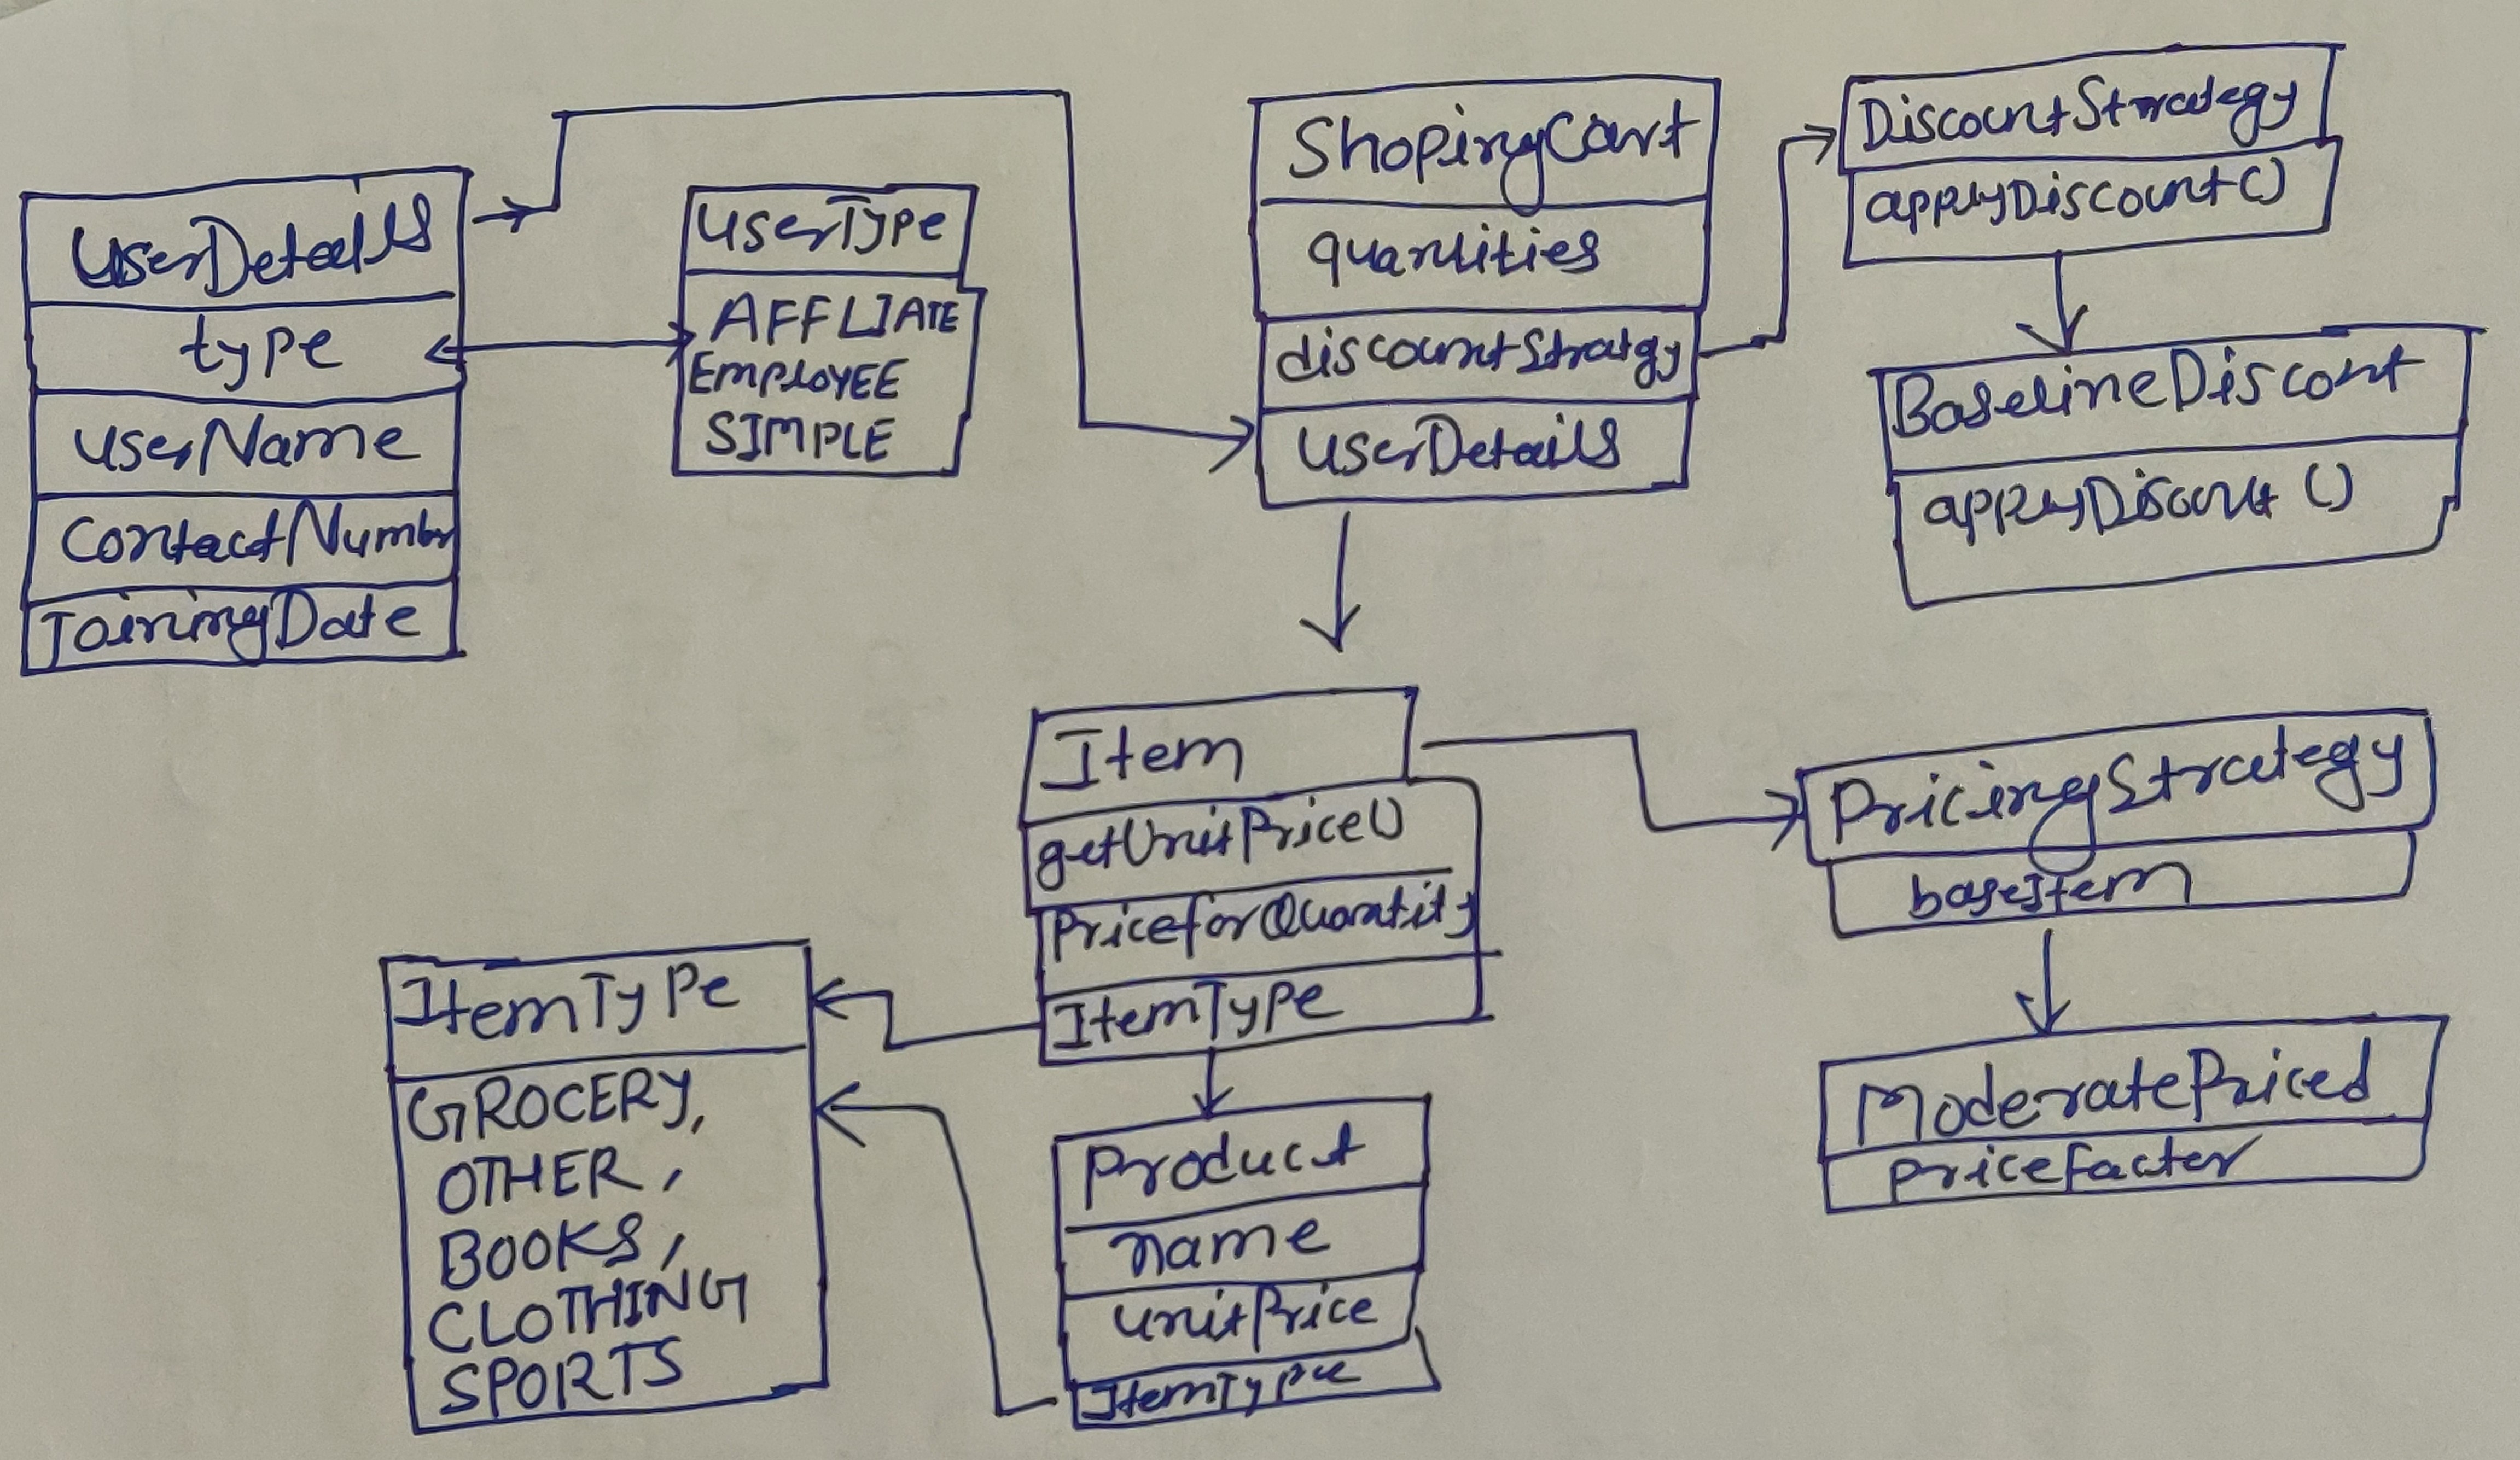 UserDetails
type
userName
ContactNumbr
JoiningDate
UserType
AFFLIATE
EMPLOYEE
SIMPLE
ShopingCart
quantities
discountStratgy
UserDetails
DiscountStrategy
applyDiscount()
BaselineDiscont
applyDiscount()
Item
getUnitPrice()
PriceforQuantity
ItemType
PricingStrategy
baseItem
ModeratePriced
pricefacter
ItemType
GROCERY,
OTHER,
BOOKS,
CLOTHING
SPORTS
Product
name
unitPrice
ItemType